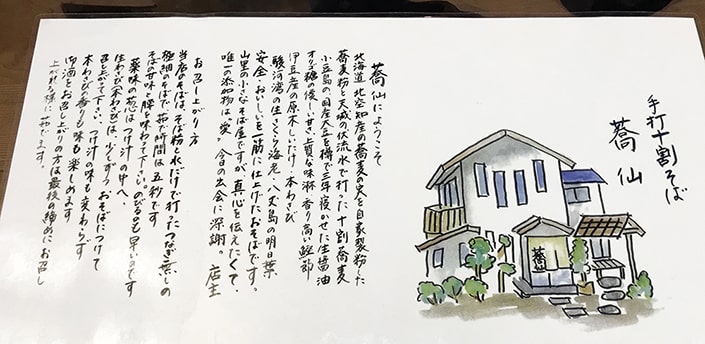 手打十割そば
蕎仙
蕎仙にようこそ
北海道 北空知産の蕎麦の実を自家製粉した
蕎麦粉と天城の伏流水で打った十割蕎麦
小豆島の国産大豆を樽で三年寝かせた生醤油
オリゴ糖の優しい甘さと上質な味淋 香り高い鰹節
伊豆産の原木しいたけ・本わさび
駿河湾の生さくら海老・八丈島の明日葉
安全・おいしいを一筋に仕上げたおそばです。
山里の小さなそば屋ですが真心を伝えたくて、
唯一の添加物は、愛。今日の出会に深謝。 店主
お召し上がり方
当店のそばは、そば粉と水だけで打ったつなぎ無しの
極細のそばで茹で時間は五秒です
そばの甘味と腰を味わって下さい。のびるのも早いのです
薬味の葱はつけ汁の中へ
生わさび(本わさび)は、少しずつおそばにつけて
召し上がって下さい、つけ汁の味も変わらず
本わさびの香りも味も楽しめます
御酒をお召し上がりの方は最後の締めにお召し
上がれる様に茹でます。
蕎仙